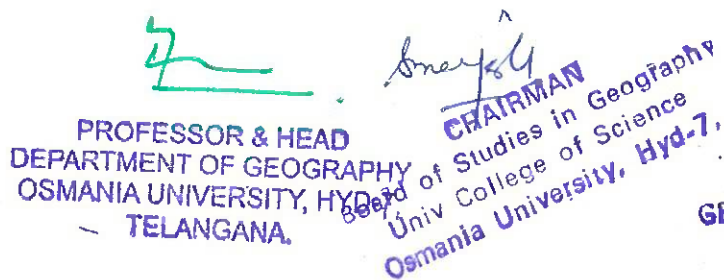 PROFESSOR & HEAD
DEPARTMENT OF GEOGRAPHY
OSMANIA UNIVERSITY, HYD-7
TELANGANA.
CHAIRMAN
Board of Studies in Geography
Univ College of Science
Osmania University, Hyd-7,
GE